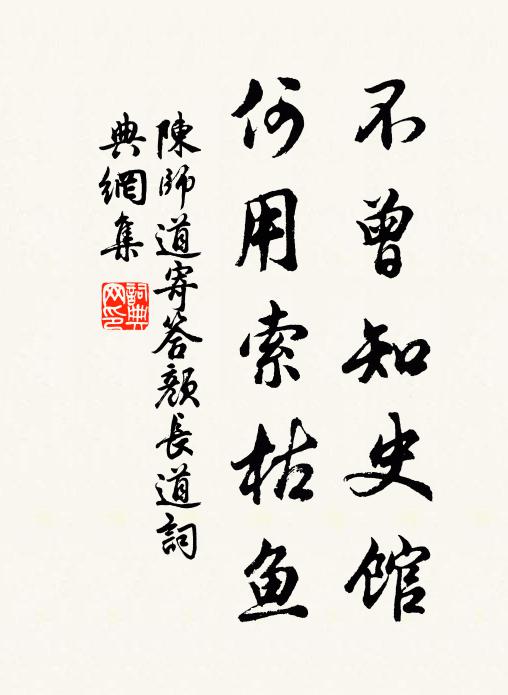 不曾知史館
何用索枯魚
陳師道寄答顏長道詞
典網集
詞典網印